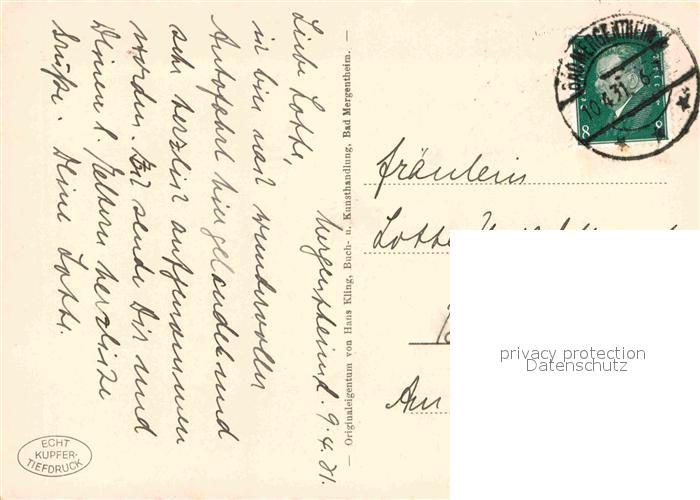 Mergentheim d. 9.4.31.
Liebe Lotte,
ich bin nach wundervoller
Autofahrt hier gelandet und
sehr herzlich aufgenommen
worden. Ich sende Dir und
Deinen l. Eltern herzliche
Grüße. Deine Lotte.
— Originaleigentum von Hans Kling, Buch- u. Kunsthandlung, Bad Mergentheim. —
ECHT
KUPFER-
TIEFDRUCK
BAD MERGENTHEIM
10.4.31.
8 8
Fräulein
Lotte
Am
privacy protection
Datenschutz